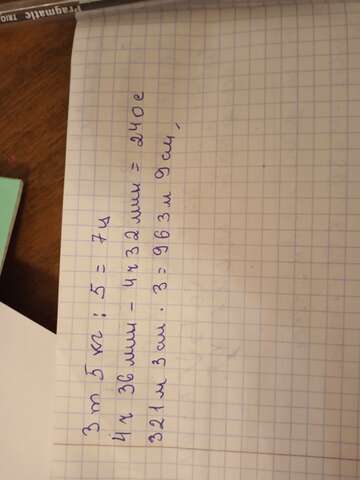 Pragmatic
3 т 5 кг : 5 = 7 ц
4 ч 36 мин - 4 ч 32 мин = 240 с
321 м 3 см · 3 = 963 м 9 см,